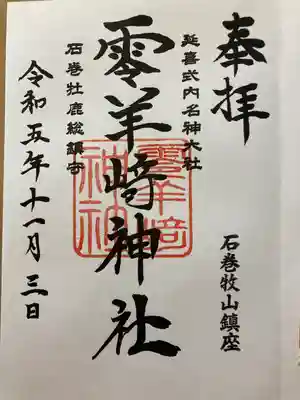 奉拝
石巻牧山鎮座
延喜式内名神大社
零羊﨑神社
石巻牡鹿総鎮守
令和五年十一月三日
零羊﨑
神社